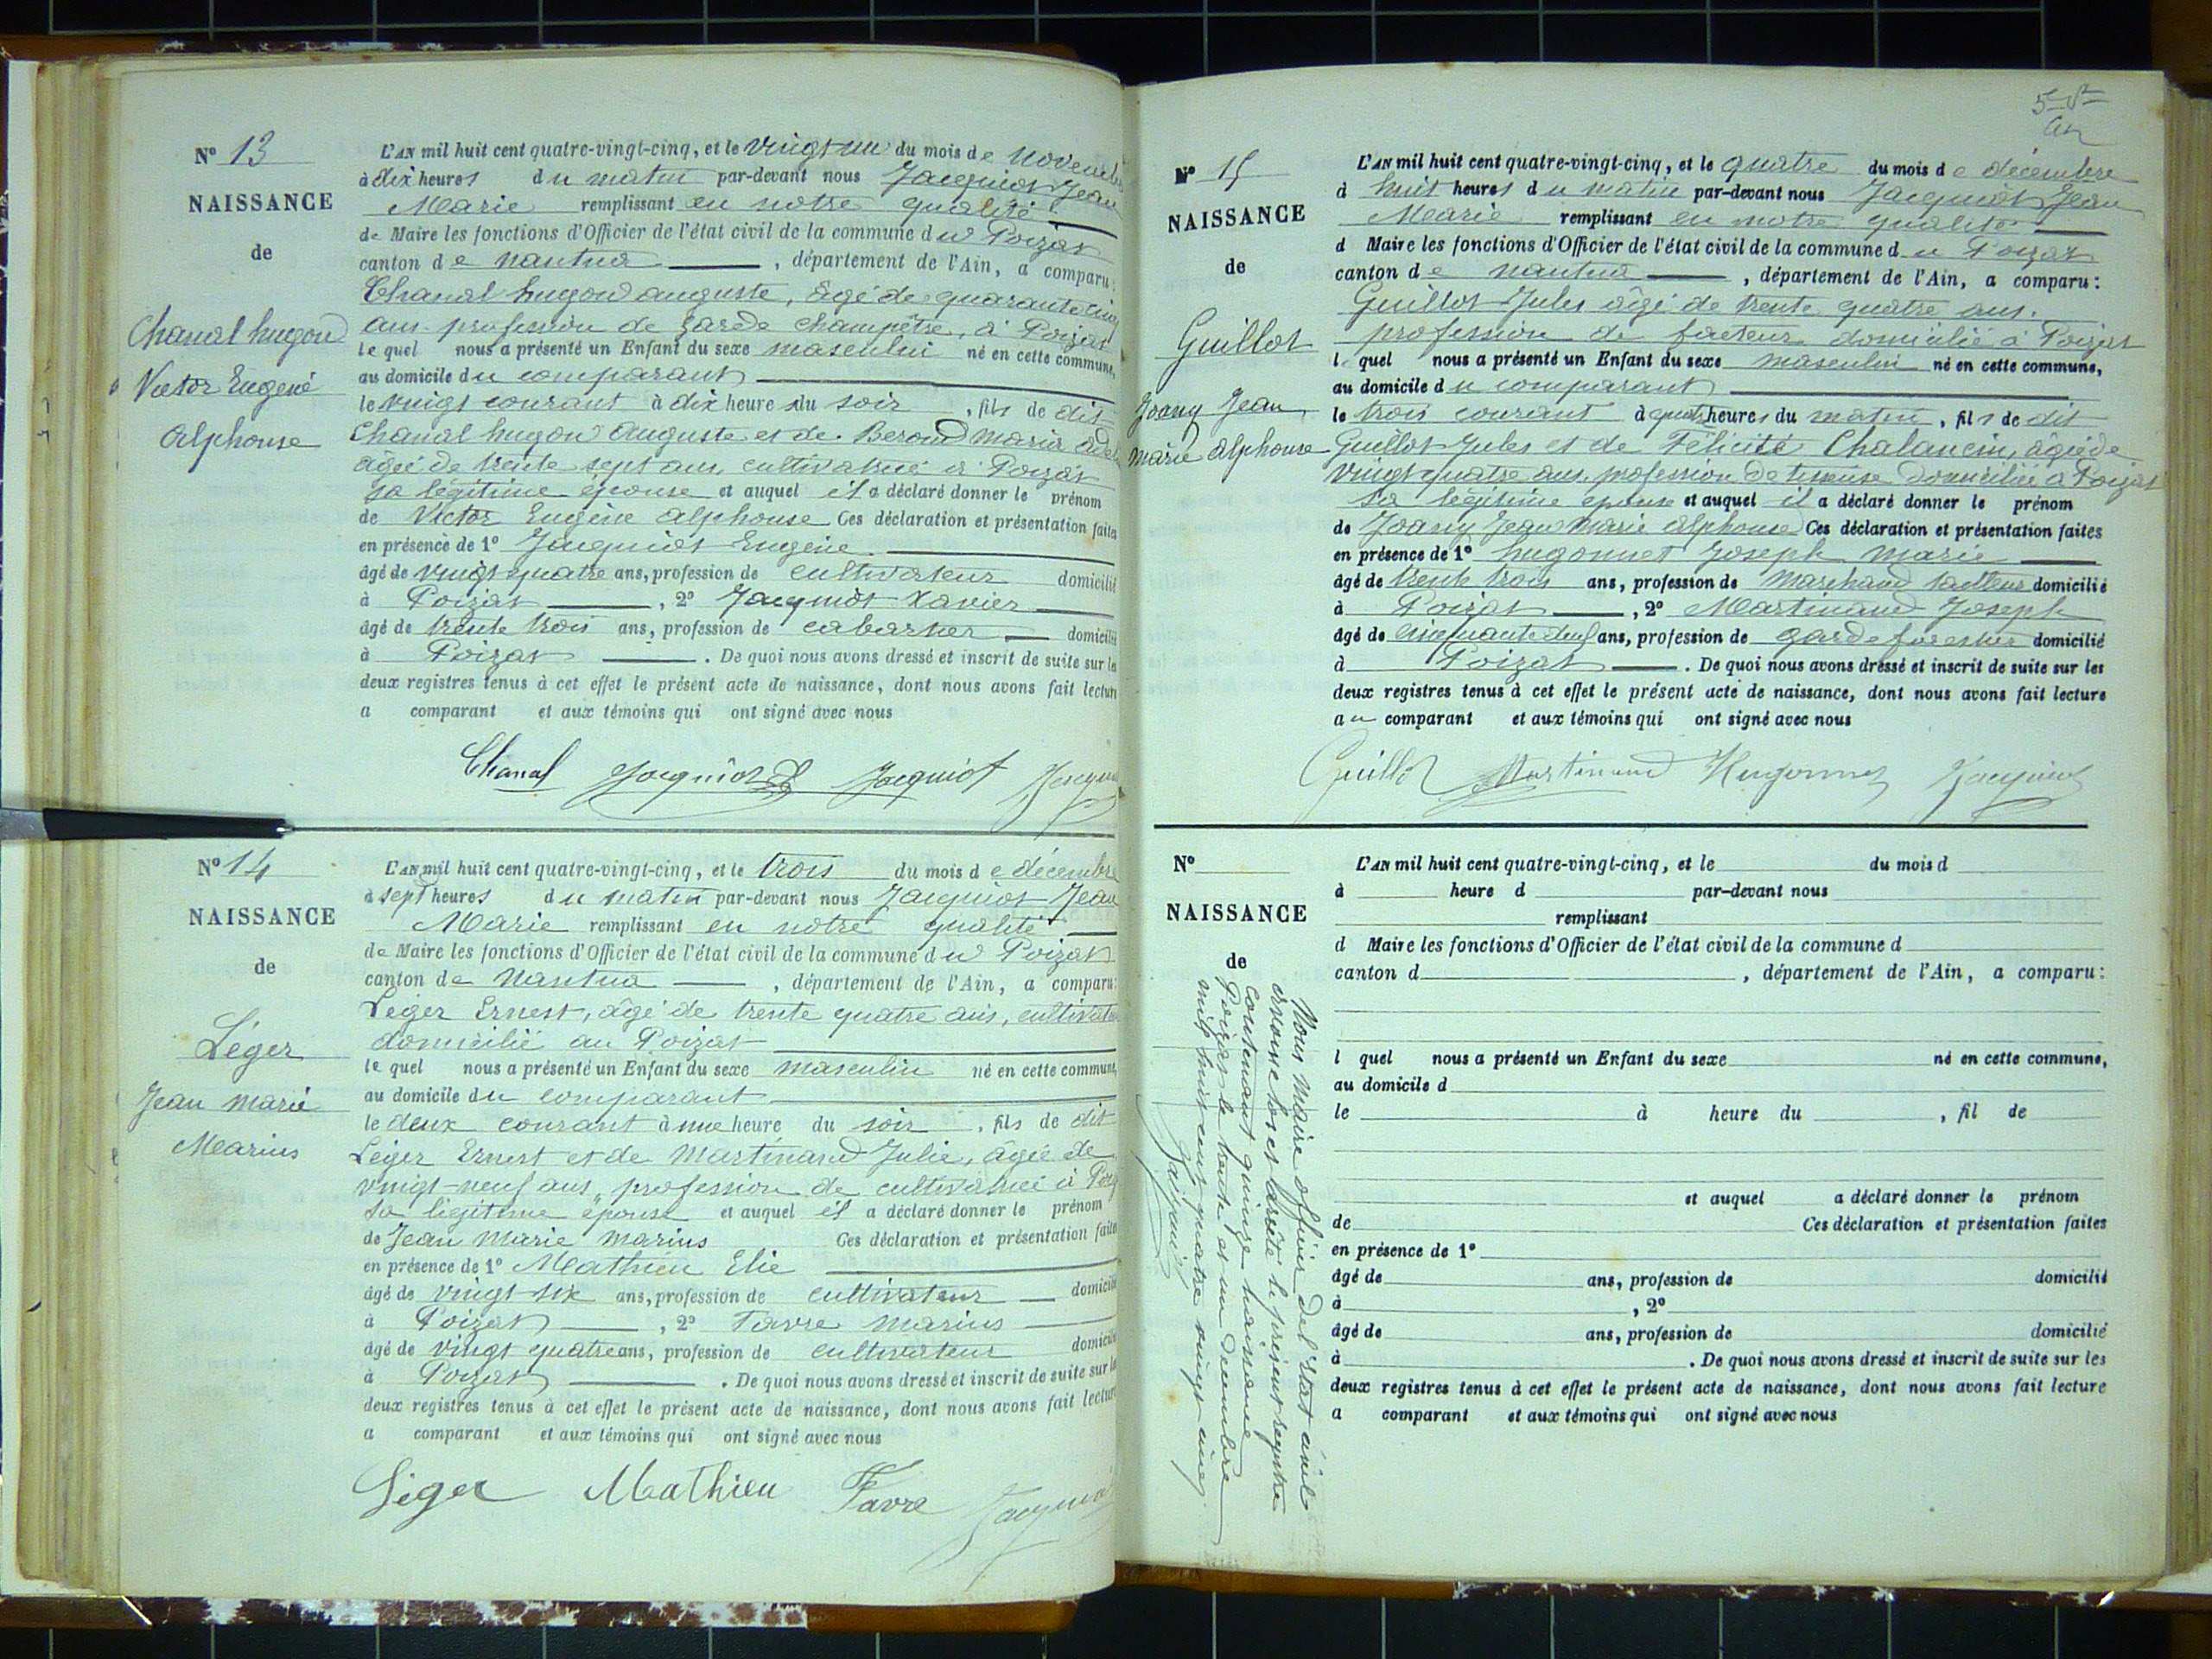 N° 13
NAISSANCE
de
Chanal hugon
Victor Eugené
Alphonse
L'AN mil huit cent quatre-vingt-cinq, et le vingt un du mois de Novembre
à dix heures du matin par-devant nous Jacquiot Jean
Marie remplissant en notre qualité
de Maire les fonctions d'Officier de l'état civil de la commune du Poizat
canton de Nantua, département de l'Ain, a comparu:
Chanal hugon auguste, âgé de quarante cinq
ans profession de garde champêtre, à Poizat
lequel nous a présenté un Enfant du sexe masculin né en cette commune,
au domicile du comparant
le vingt courant à dix heures du soir, fils de dit
Chanal hugon Auguste et de Beroud Maria
âgée de trente sept ans, cultivatrice à Poizat
sa légitime épouse et auquel il a déclaré donner le prénom
de Victor Eugène Alphonse Ces déclaration et présentation faites
en présence de 1° Jacquiot Eugène
âgé de vingt quatre ans, profession de cultivateur domicilié
à Poizat, 2° Jacquiot Xavier
âgé de trente trois ans, profession de cabartier domicilié
à Poizat. De quoi nous avons dressé et inscrit de suite sur les
deux registres tenus à cet effet le présent acte de naissance, dont nous avons fait lecture
a comparant et aux témoins qui ont signé avec nous
Chanal Jacquiot Jacquiot Jacquiot
N° 14
NAISSANCE
de
Léger
Jean Marie
Marius
L'AN mil huit cent quatre-vingt-cinq, et le trois du mois de décembre
à sept heures du matin par-devant nous Jacquiot Jean
Marie remplissant en notre qualité
de Maire les fonctions d'Officier de l'état civil de la commune du Poizat
canton de Nantua, département de l'Ain, a comparu:
Léger Ernest, âgé de trente quatre ans, cultivateur
domicilié au Poizat
lequel nous a présenté un Enfant du sexe masculin né en cette commune,
au domicile du comparant
le deux courant à une heure du soir, fils de dit
Léger Ernest et de Martinand Julie, âgée de
vingt-neuf ans, profession de cultivatrice à Poiz
sa légitime épouse et auquel il a déclaré donner le prénom
de Jean Marie Marius Ces déclaration et présentation faites
en présence de 1° Mathieu Elie
âgé de vingt six ans, profession de cultivateur domicilié
à Poizat, 2° Favre Marius
âgé de vingt quatre ans, profession de cultivateur domicilié
à Poizat. De quoi nous avons dressé et inscrit de suite sur les
deux registres tenus à cet effet le présent acte de naissance, dont nous avons fait lecture
a comparant et aux témoins qui ont signé avec nous
Léger Mathieu Favre Jacquiot
N° 15
NAISSANCE
de
Guillot
Joany Jean
marie alphonse
L'AN mil huit cent quatre-vingt-cinq, et le quatre du mois de décembre
à huit heures du matin par-devant nous Jacquiot Jean
Marie remplissant en notre qualité
d Maire les fonctions d'Officier de l'état civil de la commune du Poizat
canton de Nantua, département de l'Ain, a comparu:
Guillot Jules âgé de trente quatre ans.
profession de facteur domicilié à Poizat
l quel nous a présenté un Enfant du sexe masculin né en cette commune,
au domicile du comparant
le trois courant à quatre heures du matin, fils de dit
Guillot Jules et de Félicité Chalancin, âgée de
vingt quatre ans, profession de tisseuse domiciliée à Poizat
sa légitime épouse et auquel il a déclaré donner le prénom
de Joany Jean Marie Alphonse Ces déclaration et présentation faites
en présence de 1° hugonnet Joseph Marie
âgé de trente trois ans, profession de Marchand tailleur domicilié
à Poizat, 2° Martinand Joseph
âgé de cinquante deux ans, profession de garde forestier domicilié
à Poizat. De quoi nous avons dressé et inscrit de suite sur les
deux registres tenus à cet effet le présent acte de naissance, dont nous avons fait lecture
au comparant et aux témoins qui ont signé avec nous
Guillot Martinand Hugonnet Jacquiot
N°
NAISSANCE
de
Nous Maire officier de l'état civil
avons clos et arrêté le présent registre
contenant quinze naissance
Poizat le trente et un Decembre
mil huit cent quatre vingt cinq
Jacquiot
L'AN mil huit cent quatre-vingt-cinq, et le du mois d
à heure d par-devant nous
remplissant
d Maire les fonctions d'Officier de l'état civil de la commune d
canton d, département de l'Ain, a comparu:
l quel nous a présenté un Enfant du sexe né en cette commune,
au domicile d
le à heure du, fil de
et auquel a déclaré donner le prénom
de Ces déclaration et présentation faites
en présence de 1°
âgé de ans, profession de domicilié
à, 2°
âgé de ans, profession de domicilié
à. De quoi nous avons dressé et inscrit de suite sur les
deux registres tenus à cet effet le présent acte de naissance, dont nous avons fait lecture
a comparant et aux témoins qui ont signé avec nous